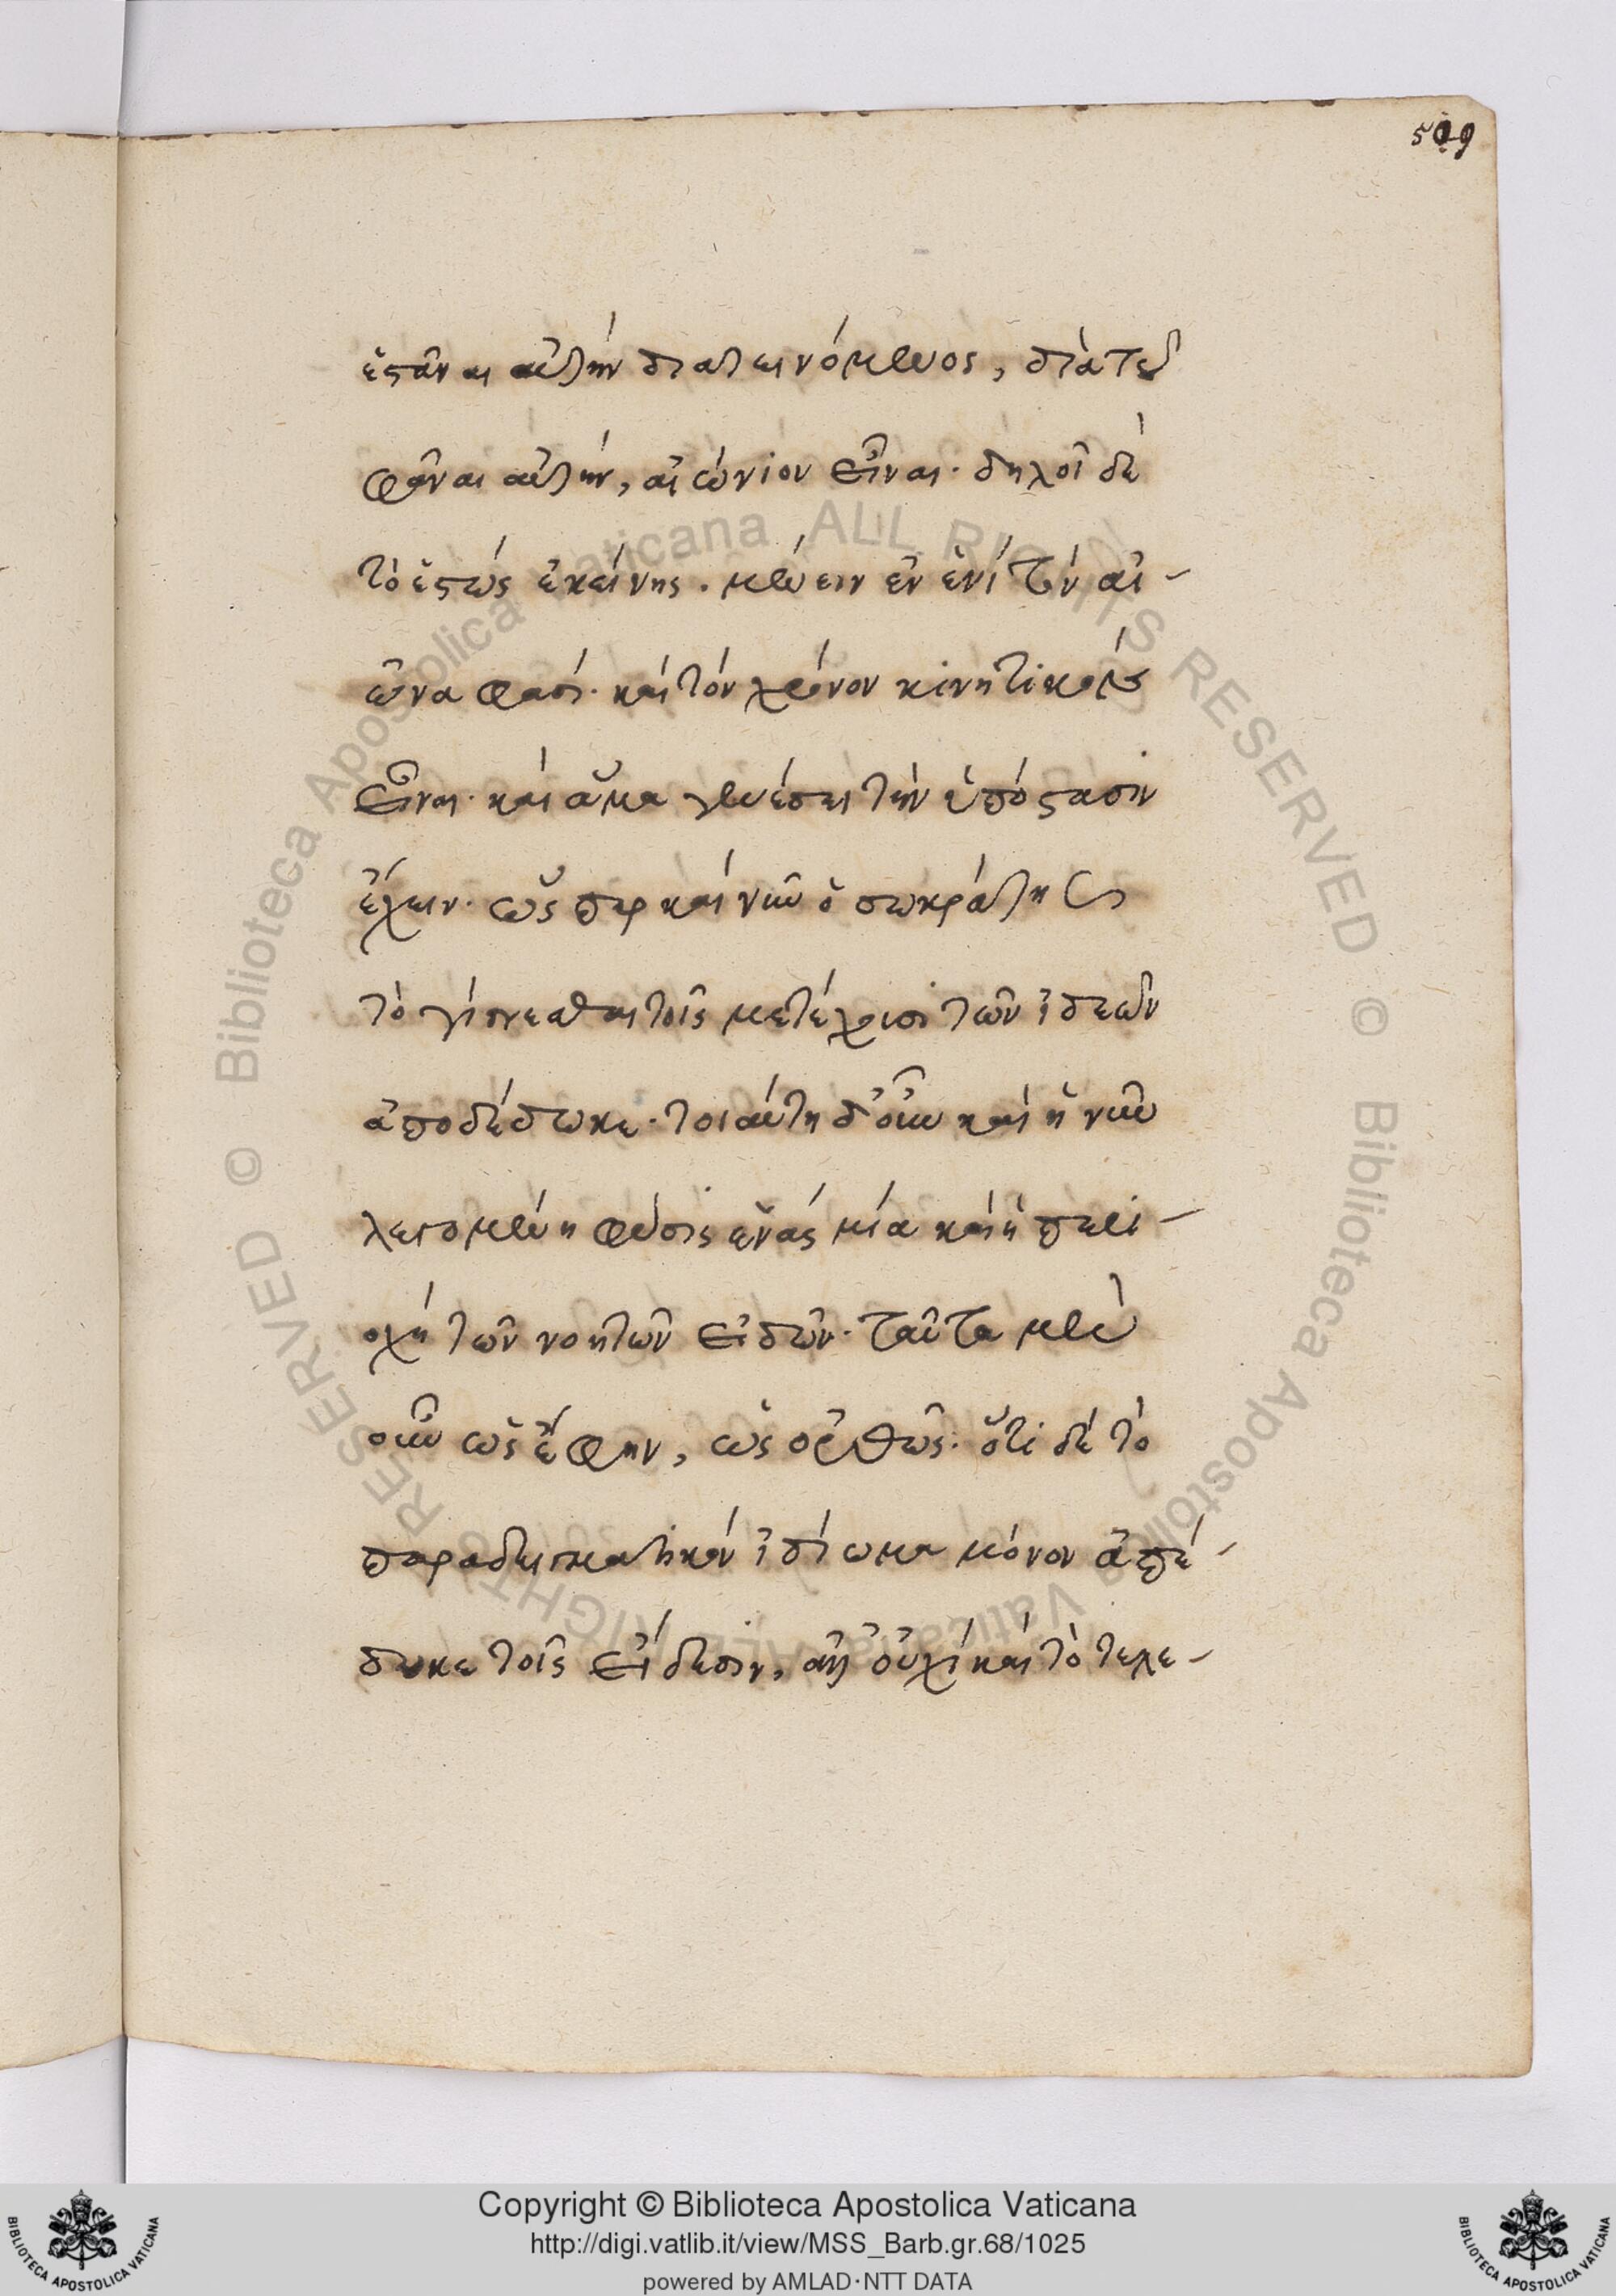 509
ἑστάναι αὐτὴν διατεινόμενος, διὰ τοῦ
φάναι αὐτὴν, αἰώνιον εἶναι. δηλοῖ δὲ
τὸ ἑστὼς ἐκείνης. μένειν ἐν ἑνὶ τὸν αἰ-
ῶνα φασί. καὶ τὸν χρόνον κινητικῶς
εἶναι. καὶ ἅμα γενέσει τὴν ὑπόστασιν
ἔχειν. ὥσπερ καὶ νῦν ὁ σωκράτης
τὸ γίγνεσθαι τοῖς μετέχουσι τῶν ἰδεῶν
ἀποδέδωκε. τοιαύτη δ' οὖν καὶ ἡ νῦν
λεγομένη φύσις ἑνὰς μία καὶ ἡ περι-
οχὴ τῶν νοητῶν εἰδῶν. ταῦτα μὲν
οὖν ὡς ἔφην, ὡς ὀρθῶς. ὅτι δὲ τὸ
παραδειγματικὸν ἰδίωμα μόνον ἀπέ-
δωκε τοῖς εἴδεσιν, ἀλλ' οὐχὶ καὶ τὸ τελε-
Copyright © Biblioteca Apostolica Vaticana
http://digi.vatlib.it/view/MSS_Barb.gr.68/1025
powered by AMLAD·NTT DATA